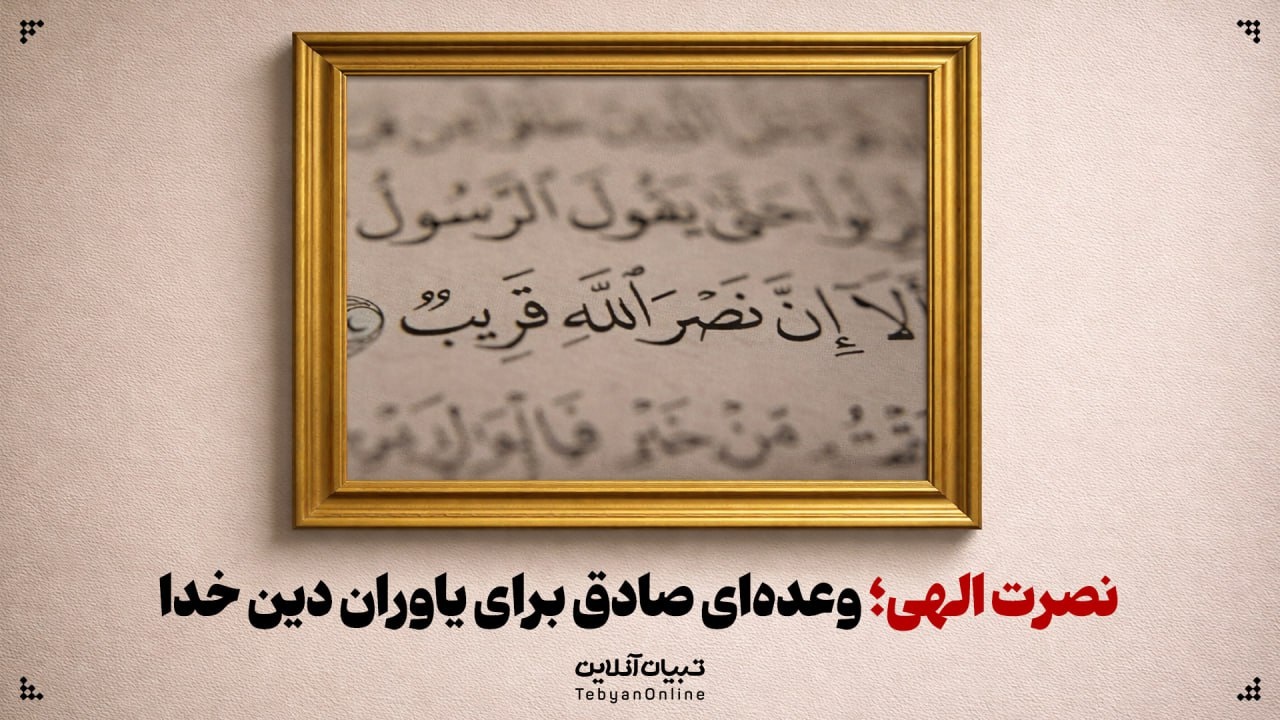 حَتَّىٰ يَقُولَ ٱلرَّسُولُ
أَلَآ إِنَّ نَصْرَ ٱللَّهِ قَرِيبٌ
مِّنْ خَيْرٍ
نصرت الهی؛ وعده‌ای صادق برای یاوران دین خدا
تبیان‌آنلاین
TebyanOnline